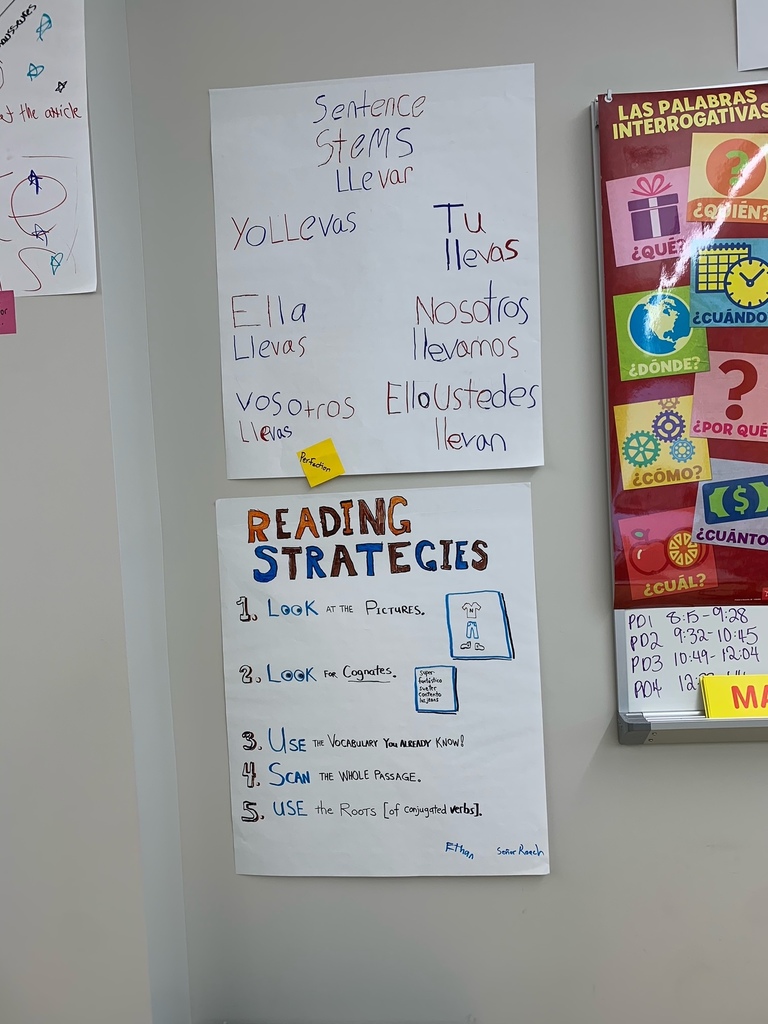 at the article
Sentence
Stems
Llevar
Yo Llevas
Tu
llevas
Ella
Llevas
Nosotros
llevamos
vosotros
Llevas
Ello Ustedes
llevan
Perfection
READING
STRATEGIES
1. LOOK AT THE PICTURES.
N
2. LOOK FOR COGNATES.
super
fantástico
suéter
contento
los jeans
3. USE THE VOCABULARY YOU ALREADY KNOW!
4. SCAN THE WHOLE PASSAGE.
5. USE the ROOTS [of conjugated verbs].
Ethan
Señor Roach
LAS PALABRAS
INTERROGATIVAS
¿QUÉ?
¿QUIÉN?
¿CUÁNDO
¿DÓNDE?
¿POR QUÉ
¿CÓMO?
$
¿CUÁNTO
¿CUÁL?
PD1 8:5-9:28
PD2 9:32-10:45
PD3 10:49-12:04
PD4
MA